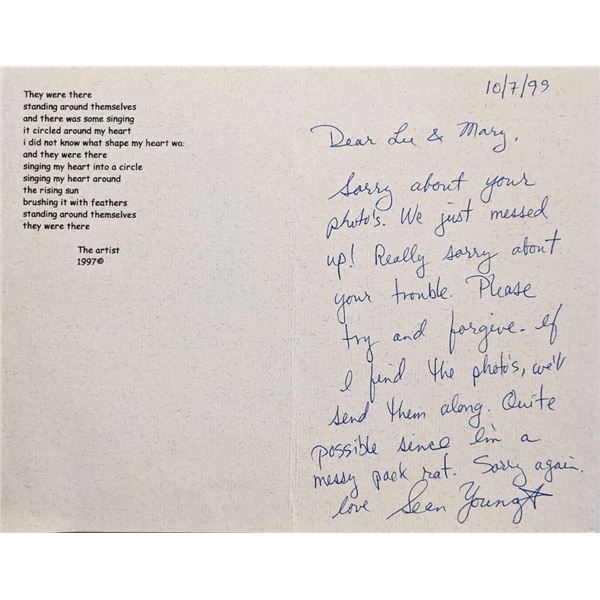 They were there
standing around themselves
and there was some singing
it circled around my heart
i did not know what shape my heart wa
and they were there
singing my heart into a circle
singing my heart around
the rising sun
brushing it with feathers
standing around themselves
they were there
The artist
1997©
10/7/99
Dear Lu & Mary,
Sorry about your
photo's. We just messed
up! Really sorry about
your trouble. Please
try and forgive. If
I find the photo's, we'll
send them along. Quite
possible since I'm a
messy pack rat. Sorry again.
love Sean Young